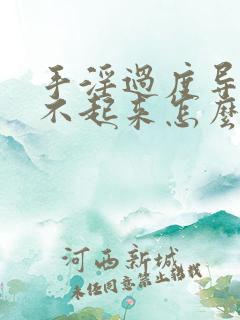 手淫过度导
不起来怎麽
河西新城
未经同意禁止转载